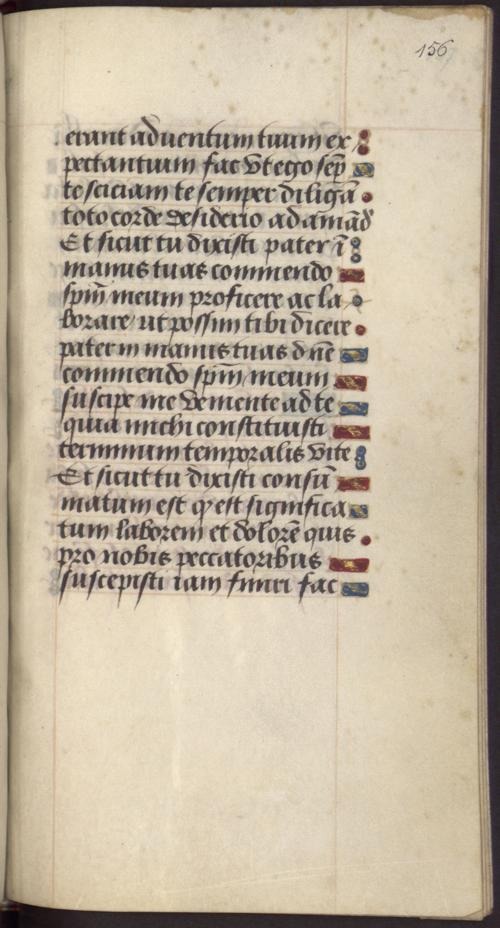 156
erant adventum tuum ex
pectantium fac Vt ego sep̄
te sciciam te semper diligā
toto corde desiderio ad amād
Et sicut tu dixisti pater ī
manus tuas commendo
sp̄m meum proficere ac la
borare ut possim tibi dicere
pater in manus tuas d n̄e
commendo sp̄m meum
suscipe me Vemente ad te
quia michi constituisti
terminum temporalis Vite
Et sicut tu dixisti consū
matum est q̄ est significa
tum laborem et dolorē quis
pro nobis peccatoribus
suscepisti iam finiri fac